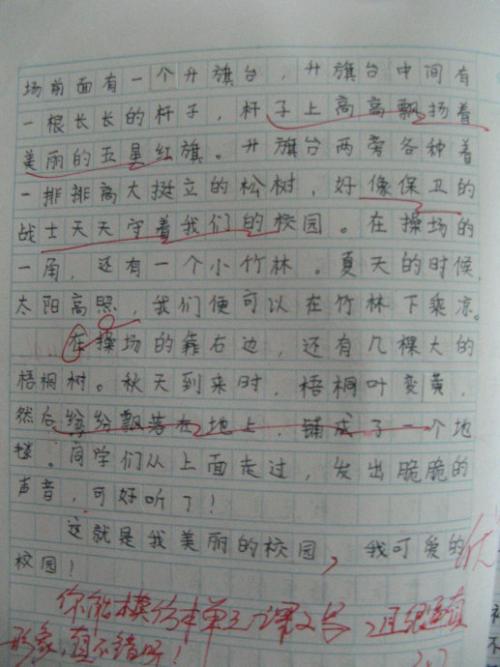 场前面有一个升旗台，升旗台中间有
一根长长的杆子，杆子上高高飘扬着
美丽的五星红旗。升旗台两旁各种着
一排排高大挺立的松树，好像保卫的
战士天天守着我们的校园。在操场的
一角，还有一个小竹林。夏天的时候，
太阳高照，我们便可以在竹林下乘凉。
在操场的靠右边，还有几棵大的
梧桐树。秋天到来时，梧桐叶变黄，
然后缤纷飘落在地上，铺成了一个地
毯。同学们从上面走过，发出脆脆的
声音，可好听了！
这就是我美丽的校园，我可爱的
校园！
优
你能模仿本单元课文写，且
形象，真不错呀！